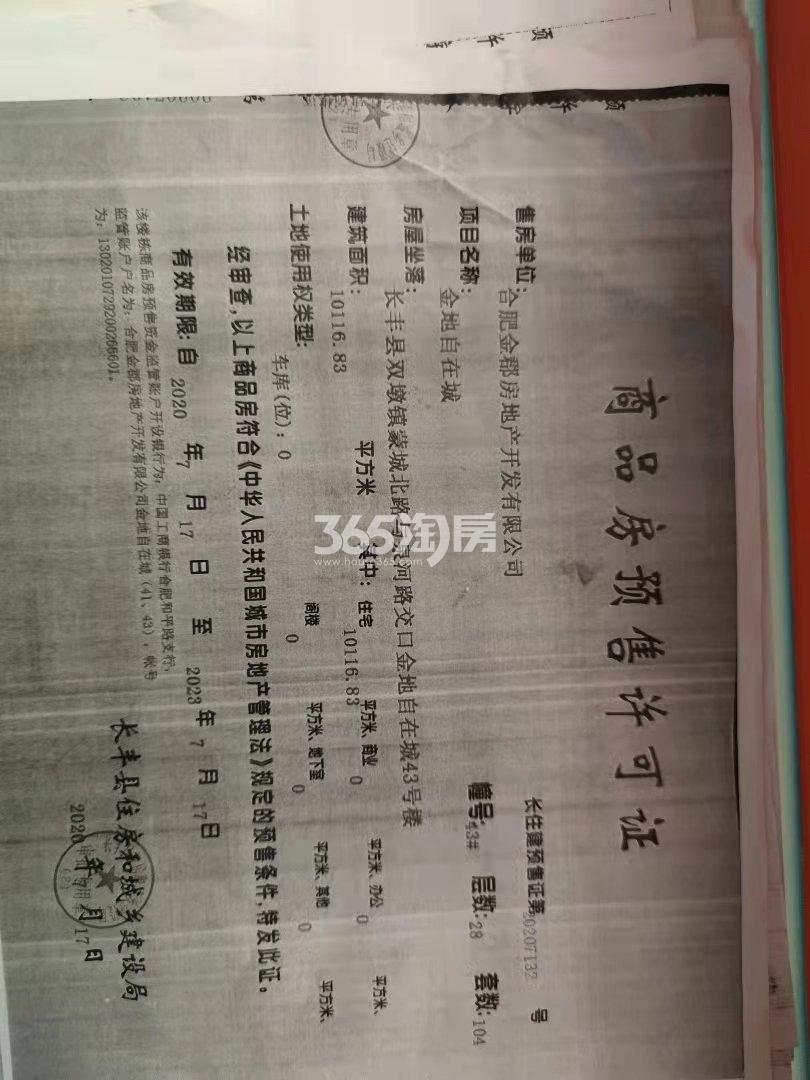 商品房预售许可证
长住建预售证第20207132 号
售房单位：合肥金郡房地产开发有限公司
幢号：43# 层数：28 套数：104
项目名称：金地自在城
房屋坐落：长丰县双墩镇蒙城北路与 河路交口金地自在城43号楼
建筑面积：10116.83 平方米 其中：住宅 10116.83 平方米、商业 0 平方米、办公 0 平方米、
阁楼 0 平方米、地下室 0 平方米、其他 0 平方米、
土地使用权类型： 车库（位）：0
经审查，以上商品房符合《中华人民共和国城市房地产管理法》规定的预售条件，特发此证。
有效期限：自 2020 年 7 月 17 日 至 2023 年 7 月 17 日
该楼栋商品房预售资金监管账户开设银行为：中国工商银行合肥和平路支行，
监管账户户名为：合肥金郡房地产开发有限公司金地自在城（41、43），帐号
为：1302010729200266601。
长丰县住房和城乡建设局
2020 年 7 月 17 日
365淘房